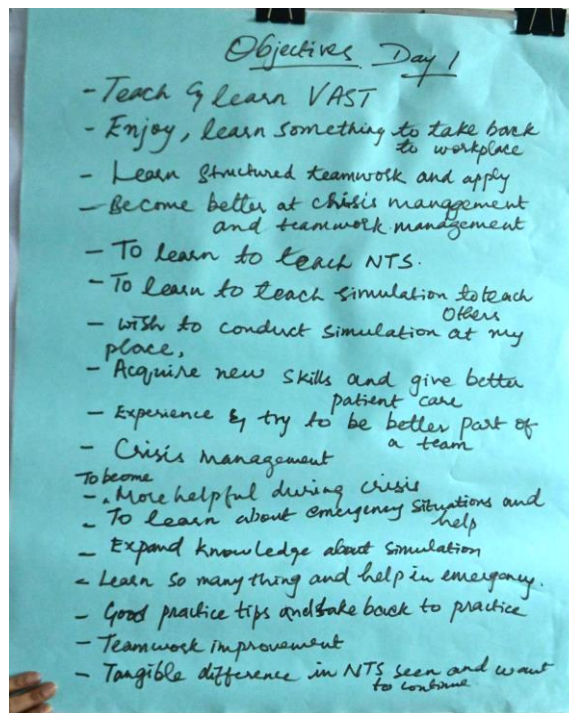 Objectives Day 1
- Teach & learn VAST
- Enjoy, learn something to take back
to workplace
- Learn structured teamwork and apply
- Become better at crisis management
and teamwork management
- To learn to teach NTS.
- To learn to teach simulation to teach
others
- wish to conduct simulation at my
place,
- Acquire new skills and give better
patient care
- Experience & try to be better part of
a team
- Crisis management
To become
- More helpful during crisis
- To learn about emergency situations and
help
- Expand knowledge about simulation
- Learn so many thing and help in emergency.
- Good practice tips and take back to practice
- Teamwork improvement
- Tangible difference in NTS seen and want
to continue